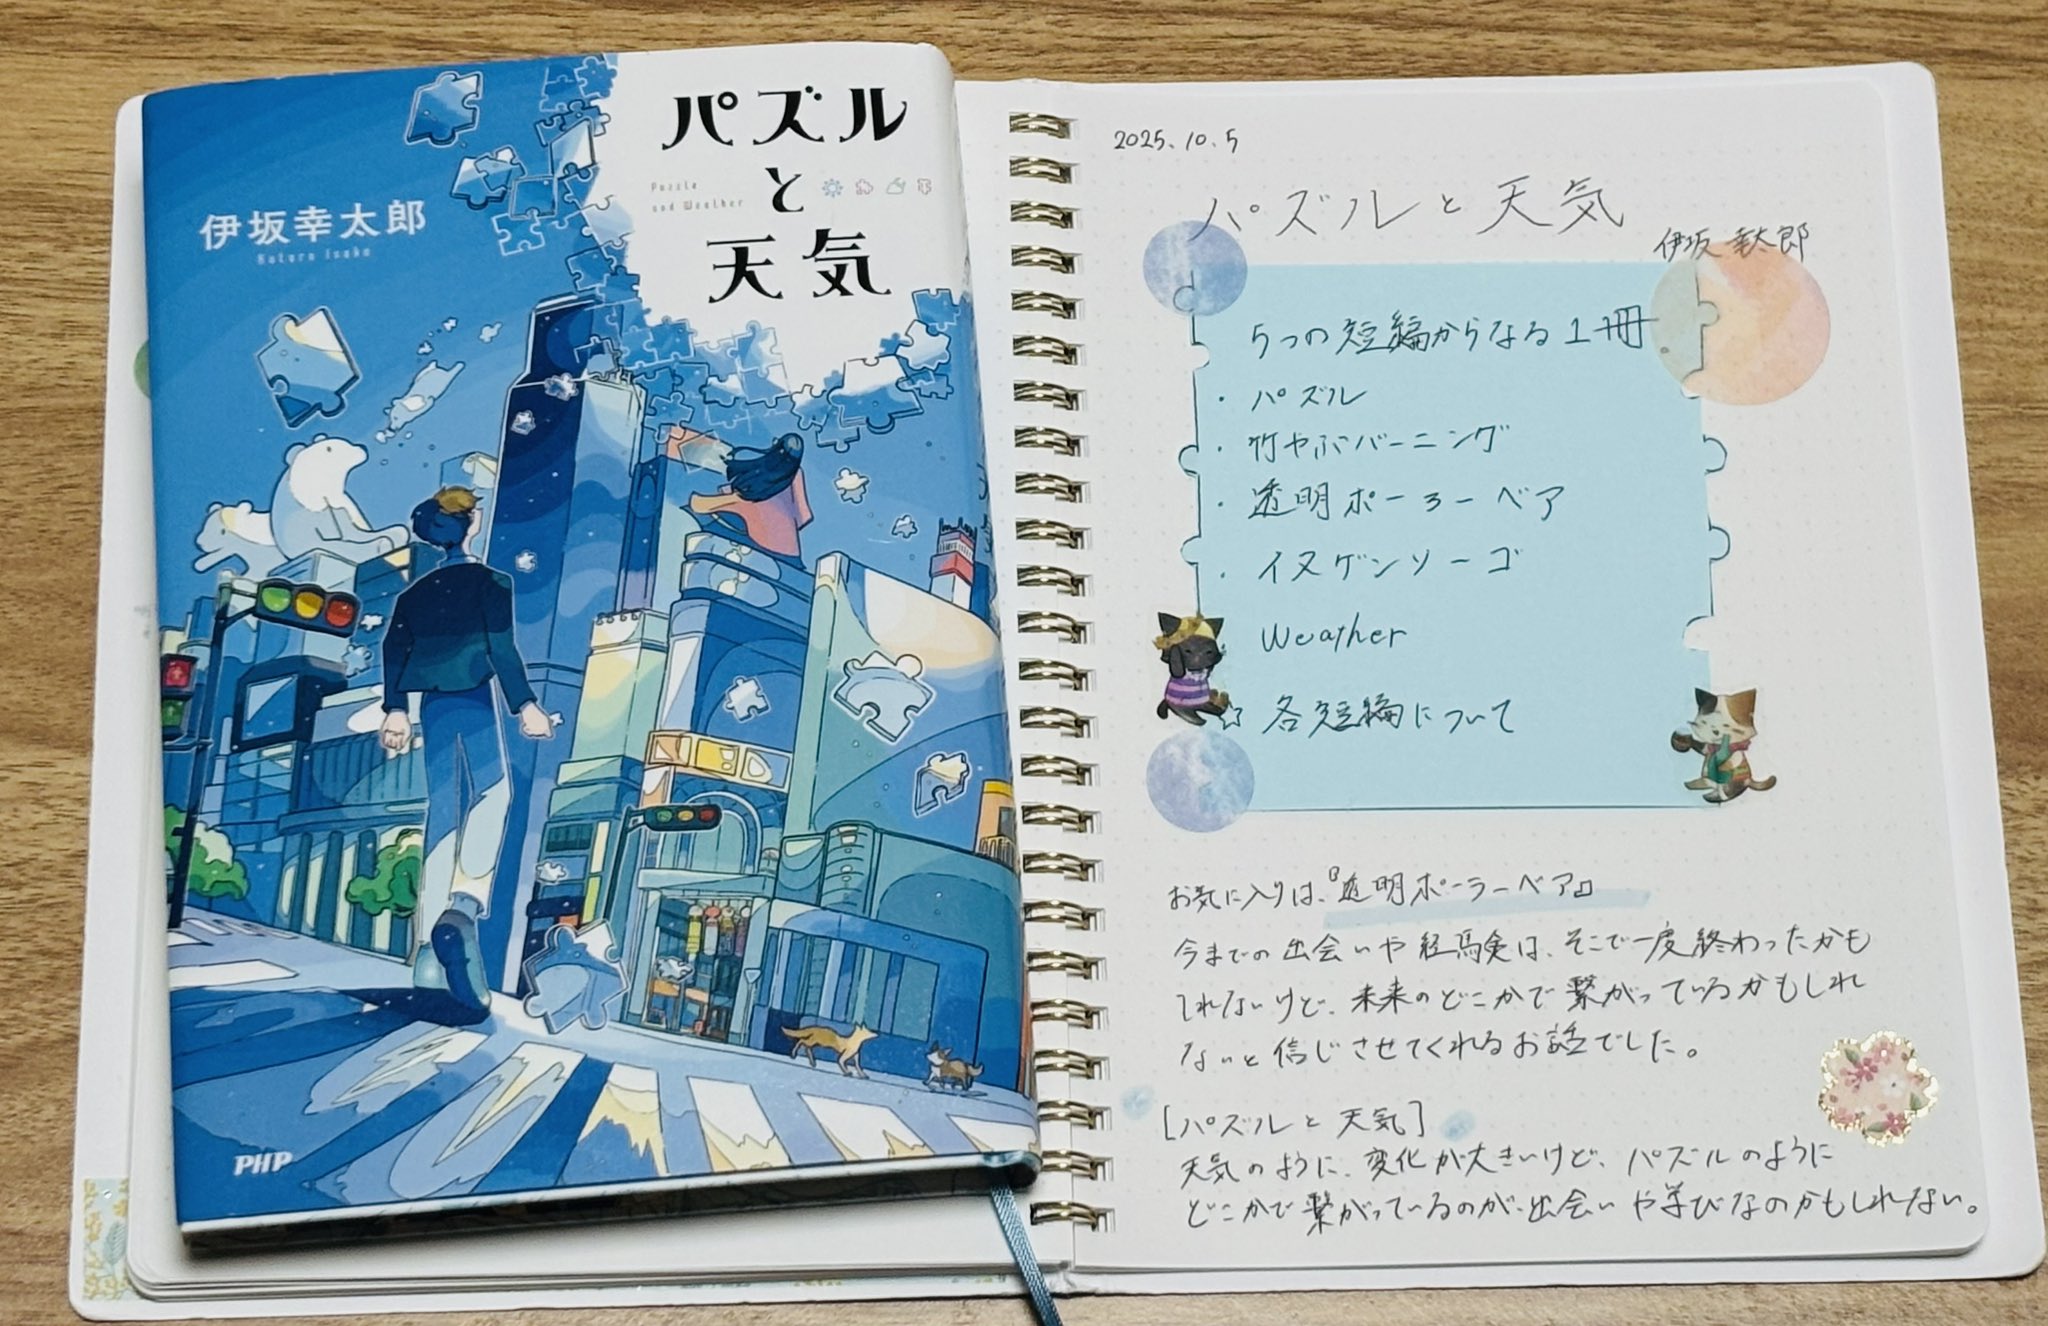 パズル
と
天気
Puzzle
and Weather
伊坂幸太郎
Kotaro Isaka
PHP
2025.10.5
パズルと天気
伊坂 幸太郎
5つの短編からなる1冊
・パズル
・竹やぶバーニング
・透明ポーラーベア
・イヌゲンソーゴ
Weather
☆ 各短編について
お気に入りは、『透明ポーラーベア』
今までの出会いや経験は、そこで一度終わったかも
しれないけど、未来のどこかで繋がっているかもしれ
ないと信じさせてくれるお話でした。
[パズルと天気]
天気のように、変化が大きいけど、パズルのように
どこかで繋がっているのが、出会いや学びなのかもしれない。